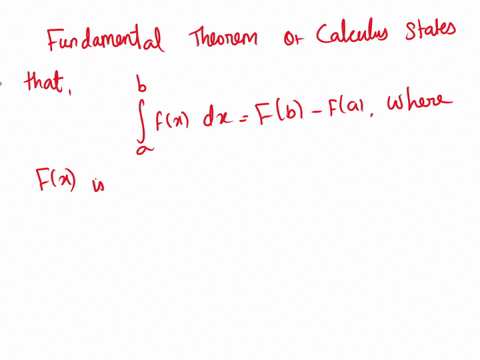 Fundamental Theorem of Calculus States
that,
∫_a^b f(x) dx = F(b) - F(a), where
F(x) is